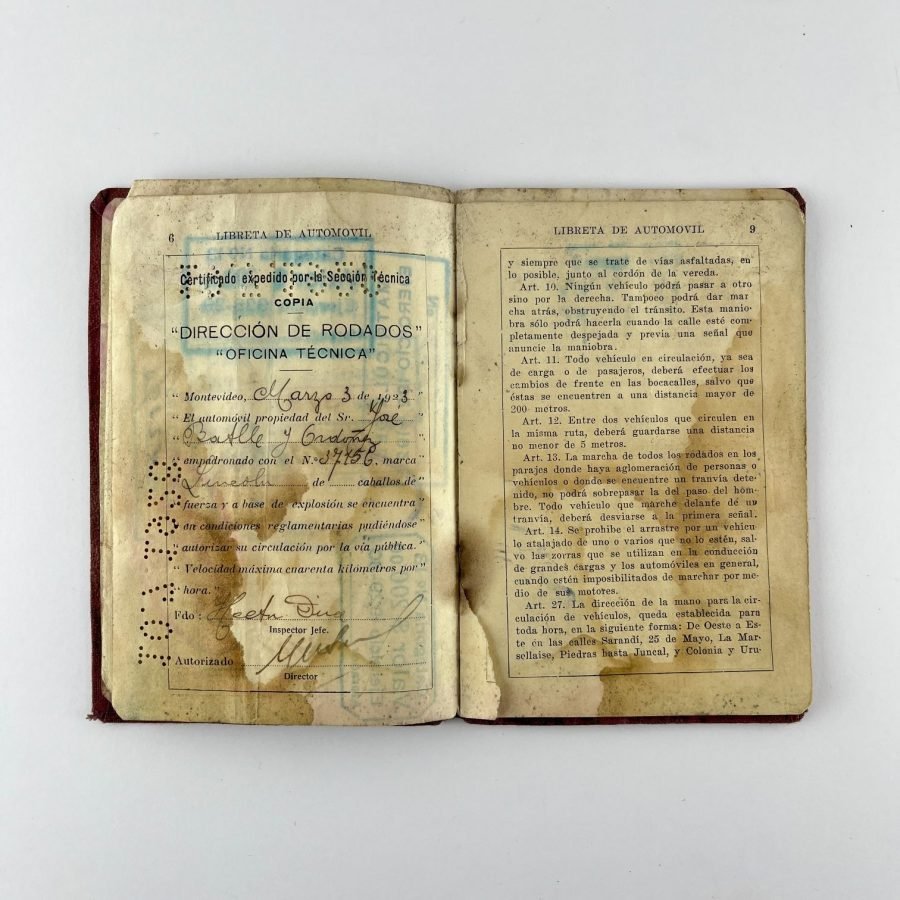 6 LIBRETA DE AUTOMOVIL
Certificado expedido por la Sección Técnica
COPIA
"DIRECCIÓN DE RODADOS"
"OFICINA TÉCNICA"
" Montevideo, Marzo 3 de 1923 "
" El automóvil propiedad del Sr. José "
" Batlle y Ordóñez "
" empadronado con el N.º 37456. marca "
Lincoln de caballos de "
fuerza y a base de explosión se encuentra "
en condiciones reglamentarias pudiéndose "
autorizar su circulación por la vía pública. "
" Velocidad máxima cuarenta kilómetros por "
" hora. "
Fdo:
Inspector Jefe.
Autorizado
Director
LIBRETA DE AUTOMOVIL 9
y siempre que se trate de vías asfaltadas, en
lo posible, junto al cordón de la vereda.
Art. 10. Ningún vehículo podrá pasar a otro
sino por la derecha. Tampoco podrá dar mar
cha atrás, obstruyendo el tránsito. Esta manio-
bra sólo podrá hacerla cuando la calle esté com-
pletamente despejada y previa una señal que
anuncie la maniobra.
Art. 11. Todo vehículo en circulación, ya sea
de carga o de pasajeros, deberá efectuar los
cambios de frente en las bocacalles, salvo que
éstas se encuentren a una distancia mayor de
200 metros.
Art. 12. Entre dos vehículos que circulen en
la misma ruta, deberá guardarse una distancia
no menor de 5 metros.
Art. 13. La marcha de todos los rodados en los
parajes donde haya aglomeración de personas o
vehículos o donde se encuentre un tranvía dete-
nido, no podrá sobrepasar la del paso del hom-
bre. Todo vehículo que marche delante de un
tranvía, deberá desviarse a la primera señal.
Art. 14. Se prohibe el arrastre por un vehícu
lo atalajado de uno o varios que no lo estén, sal-
vo las zorras que se utilizan en la conducción
de grandes cargas y los automóviles en general,
cuando estén imposibilitados de marchar por me-
dio de sus motores.
Art. 27. La dirección de la mano para la cir-
culación de vehículos, queda establecida para
toda hora, en la siguiente forma: De Oeste a Es-
te en las calles Sarandí, 25 de Mayo, La Mar-
sellaise, Piedras hasta Juncal, y Colonia y Uru-